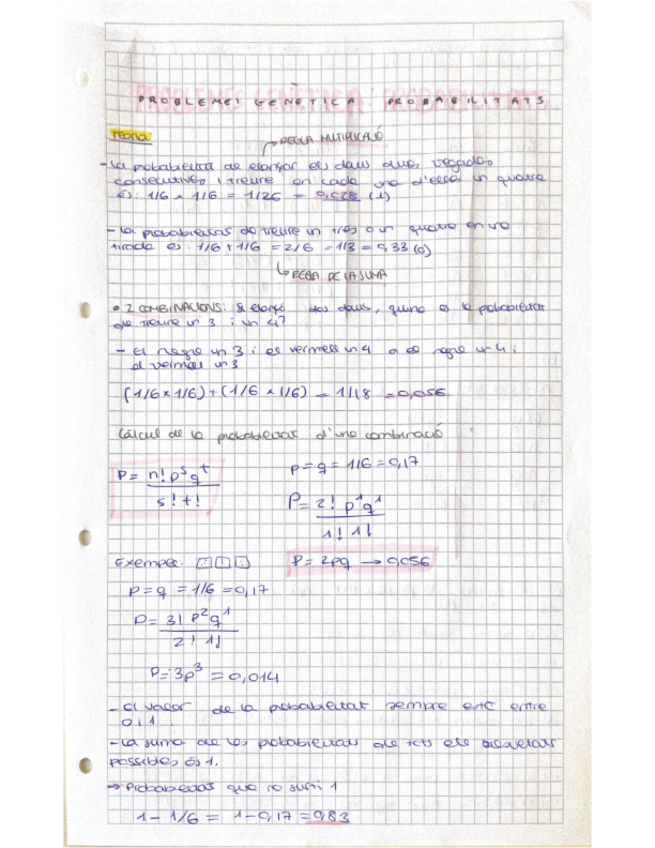 PROBLEMES GENÈTICA: PROBABILITATS
Teoria:
REGLA MULTIPLICACIÓ
- La probabilitat de llançar els daus dues vegades
consecutives i treure en cada una d'elles un quatre
és: 1/6 x 1/6 = 1/36 = 0,028 (i)
- La probabilitat de treure un tres o un quatre en una
tirada és: 1/6 + 1/6 = 2/6 = 1/3 = 0,33 (o)
REGLA DE LA SUMA
• 2 COMBINACIONS: Si llanço dos daus, quina és la probabilitat
de treure un 3 i un 4?
- El negre un 3 i el vermell un 4 o el negre un 4 i
el vermell un 3
(1/6 x 1/6) + (1/6 x 1/6) = 1/18 = 0,056
Càlcul de la probabilitat d'una combinació
P = n! p^s q^t / s! t!
p = q = 1/6 = 0,17
P = 2! p^1 q^1 / 1! 1!
P = 2pq → 0,056
Exemple:
p = q = 1/6 = 0,17
P = 3! p^2 q^1 / 2! 1!
P = 3p^3 = 0,014
- El valor de la probabilitat sempre està entre
0 i 1.
- La suma de les probabilitats de tots els resultats
possibles és 1.
→ Probabilitat que no surti 1
1 - 1/6 = 1 - 0,17 = 0,83